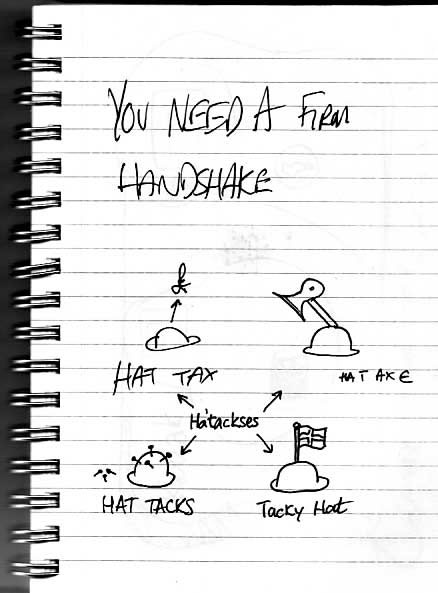 YOU NEED A FIRM
HANDSHAKE
£
HAT TAX
HAT AXE
Hatackses
HAT TACKS
Tacky Hat